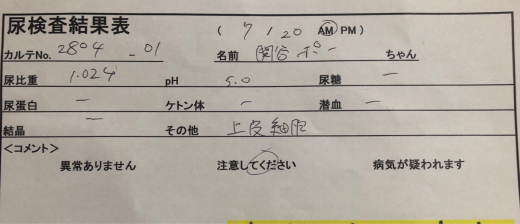 尿検査結果表 ( 7/20 AM PM )
カルテNo. 2804-01 名前 関谷ポー ちゃん
尿比重 1.024 pH 5.0 尿糖 ー
尿蛋白 ー ケトン体 ー 潜血 ー
結晶 ー その他 上皮細胞
<コメント>
異常ありません 注意してください 病気が疑われます